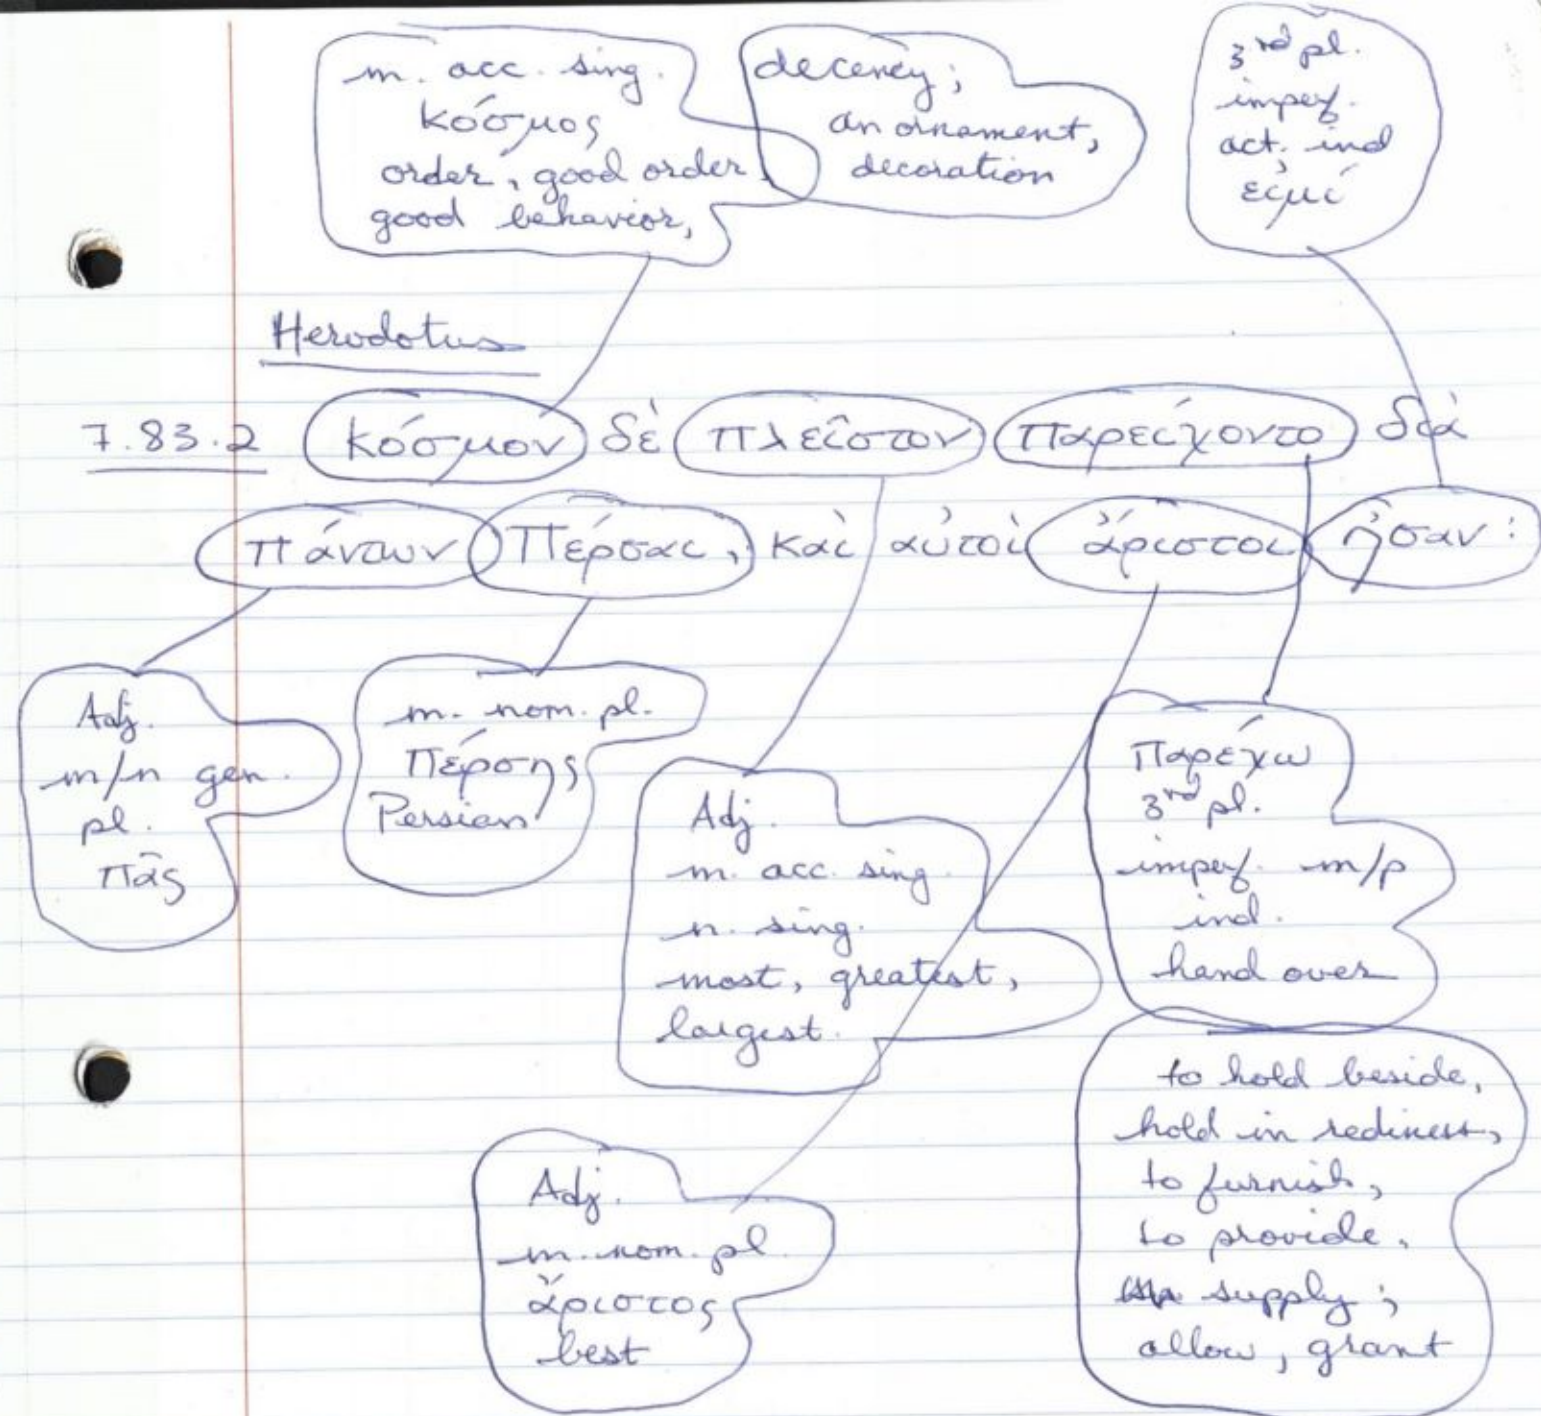 m. acc. sing.
κόσμος
order, good order,
good behavior,
decency;
an ornament,
decoration
3rd pl.
impef.
act. ind
εἰμί
Herodotus
7.83.2 κόσμον δὲ πλεῖστον παρείχοντο διὰ
πάντων Πέρσαι, καὶ αὐτοὶ ἄριστοι ἦσαν:
Adj.
m/n gen.
pl.
πᾶς
m. nom. pl.
Πέρσης
Persian
Adj.
m. acc. sing.
n. sing.
most, greatest,
largest.
παρέχω
3rd pl.
impef. m/p
ind.
hand over
to hold beside,
hold in rediness,
to furnish,
to provide,
supply;
allow, grant
Adj.
m. nom. pl.
ἄριστος
best